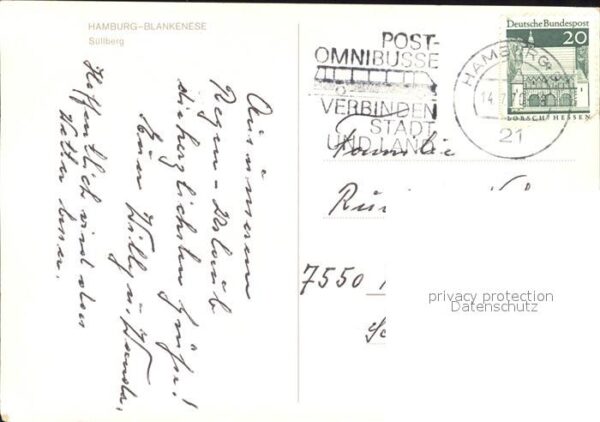 HAMBURG–BLANKENESE
Süllberg
Aus unserem
Regen-Urlaub
die herzlichsten Grüße!
Eure Willy u. Wanda.
Hoffentlich wird das
Wetter besser.
POST-
OMNIBUSSE
VERBINDEN
STADT
UND LAND
HAMBURG
14.7.
21
Deutsche Bundespost
20
LORSCH/HESSEN
Familie
7550
privacy protection
Datenschutz